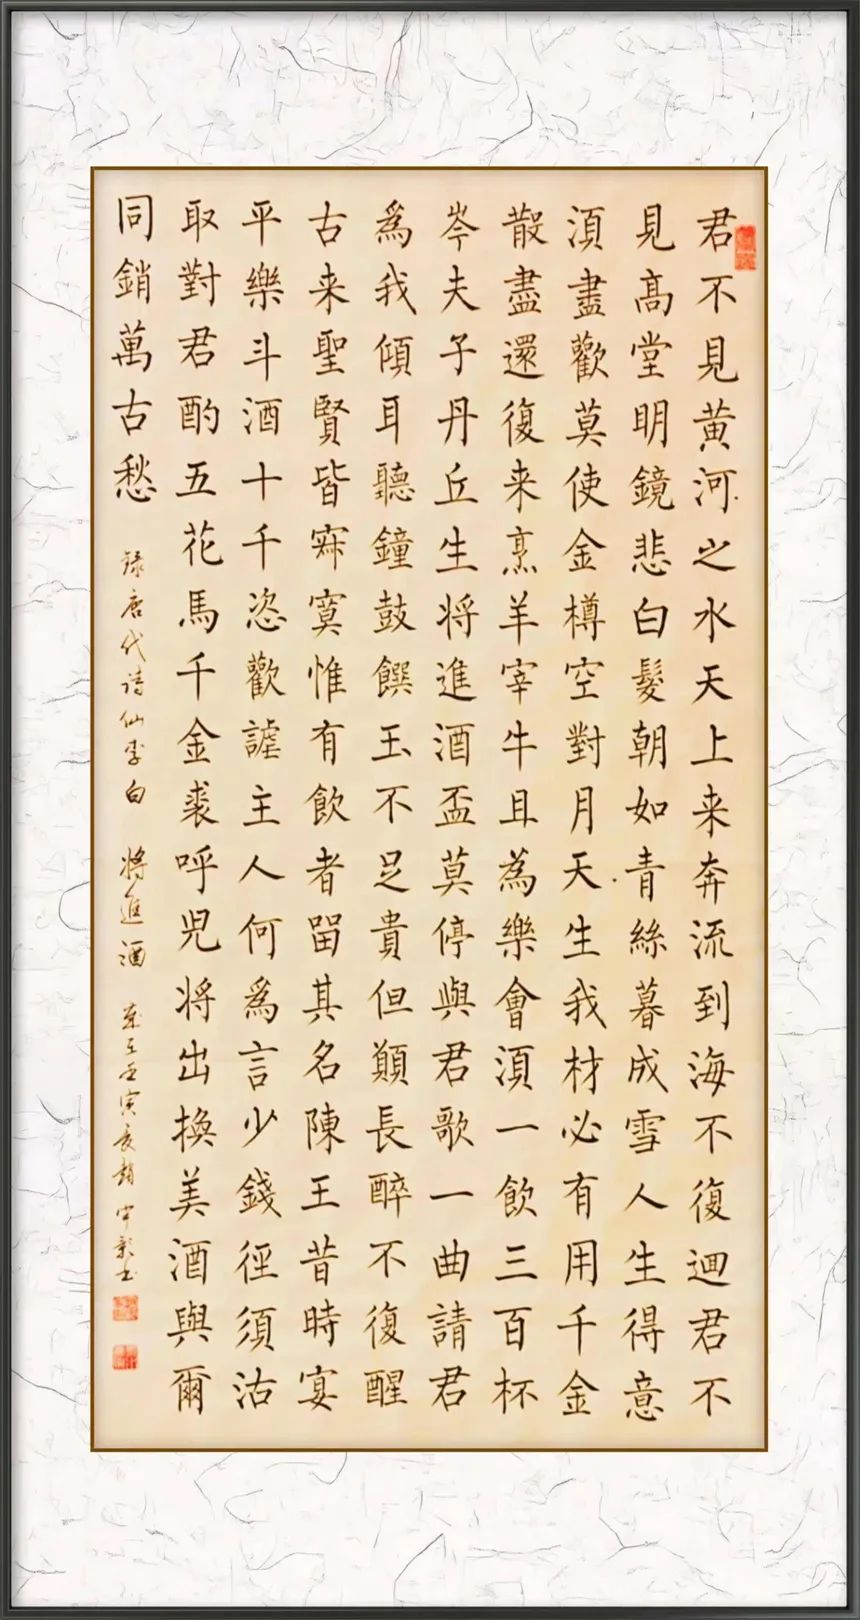 君不見黃河之水天上来奔流到海不復迴君不
見高堂明鏡悲白髮朝如青絲暮成雪人生得意
須盡歡莫使金樽空對月天生我材必有用千金
散盡還復来烹羊宰牛且為樂會須一飲三百杯
岑夫子丹丘生將進酒盃莫停與君歌一曲請君
爲我傾耳聽鐘鼓饌玉不足貴但願長醉不復醒
古来聖賢皆寂寞惟有飲者留其名陳王昔時宴
平樂斗酒十千恣歡謔主人何爲言少錢徑須沽
取對君酌五花馬千金裘呼兒將出換美酒與爾
同銷萬古愁
録唐代诗仙李白 將進酒 歲在壬寅